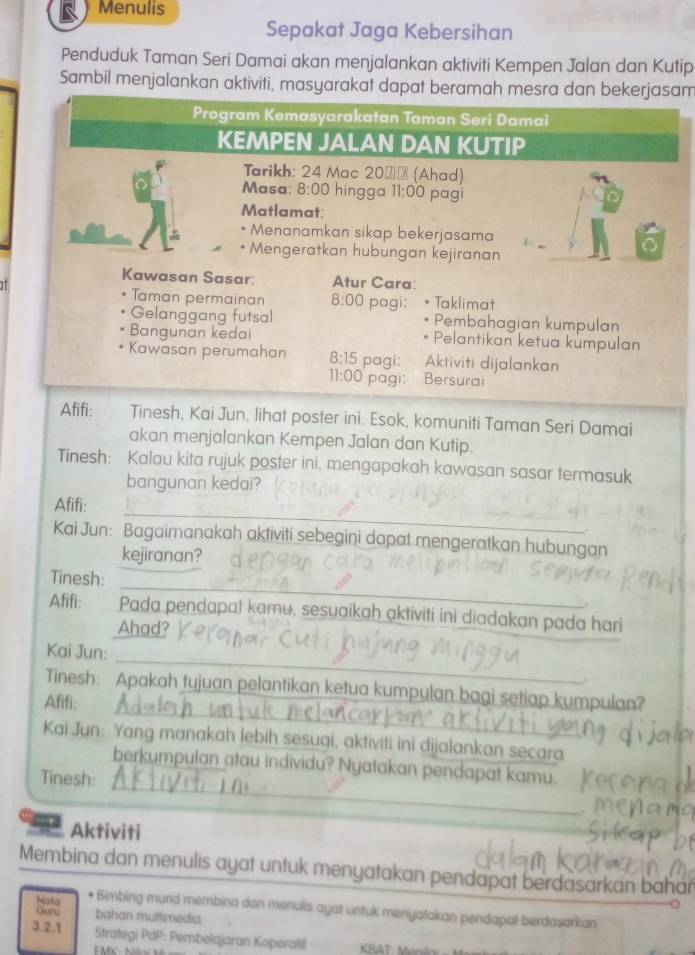 Menulis
Sepakat Jaga Kebersihan
Penduduk Taman Seri Damai akan menjalankan aktiviti Kempen Jalan dan Kutip
Sambil menjalankan aktiviti, masyarakat dapat beramah mesra dan bekerjasam
Program Kemasyarakatan Taman Seri Damai
KEMPEN JALAN DAN KUTIP
Tarikh: 24 Mac 20 (Ahad)
Masa: 8:00 hingga 11:00 pagi
Matlamat:
• Menanamkan sikap bekerjasama
• Mengeratkan hubungan kejiranan
Kawasan Sasar:
• Taman permainan
• Gelanggang futsal
• Bangunan kedai
• Kawasan perumahan
Atur Cara:
8:00 pagi: • Taklimat
• Pembahagian kumpulan
• Pelantikan ketua kumpulan
8:15 pagi: Aktiviti dijalankan
11:00 pagi: Bersurai
Afifi: Tinesh, Kai Jun, lihat poster ini. Esok, komuniti Taman Seri Damai
akan menjalankan Kempen Jalan dan Kutip.
Tinesh: Kalau kita rujuk poster ini, mengapakah kawasan sasar termasuk
bangunan kedai? kerana
Afifi:
Kai Jun: Bagaimanakah aktiviti sebegini dapat mengeratkan hubungan
kejiranan? dengan cara melibatkan semura Pend
Tinesh:
Afifi: Pada pendapat kamu, sesuaikah aktiviti ini diadakan pada hari
Ahad? Keranar cuti hujung minggu
Kai Jun:
Tinesh: Apakah tujuan pelantikan ketua kumpulan bagi setiap kumpulan?
Afifi: Adalah untuk melancarkan aktiviti yang dijala
Kai Jun: Yang manakah lebih sesuai, aktiviti ini dijalankan secara
berkumpulan atau individu? Nyatakan pendapat kamu.
Tinesh: Aktiviti ini
menama
Sikap be
dalam
Aktiviti
Membina dan menulis ayat untuk menyatakan pendapat berdasarkan bahan
Nota
Guru
3.2.1
• Bimbing murid membina dan menulis ayat untuk menyatakan pendapat berdasarkan
bahan multimedia.
Strategi PdP: Pembelajaran Koperatif